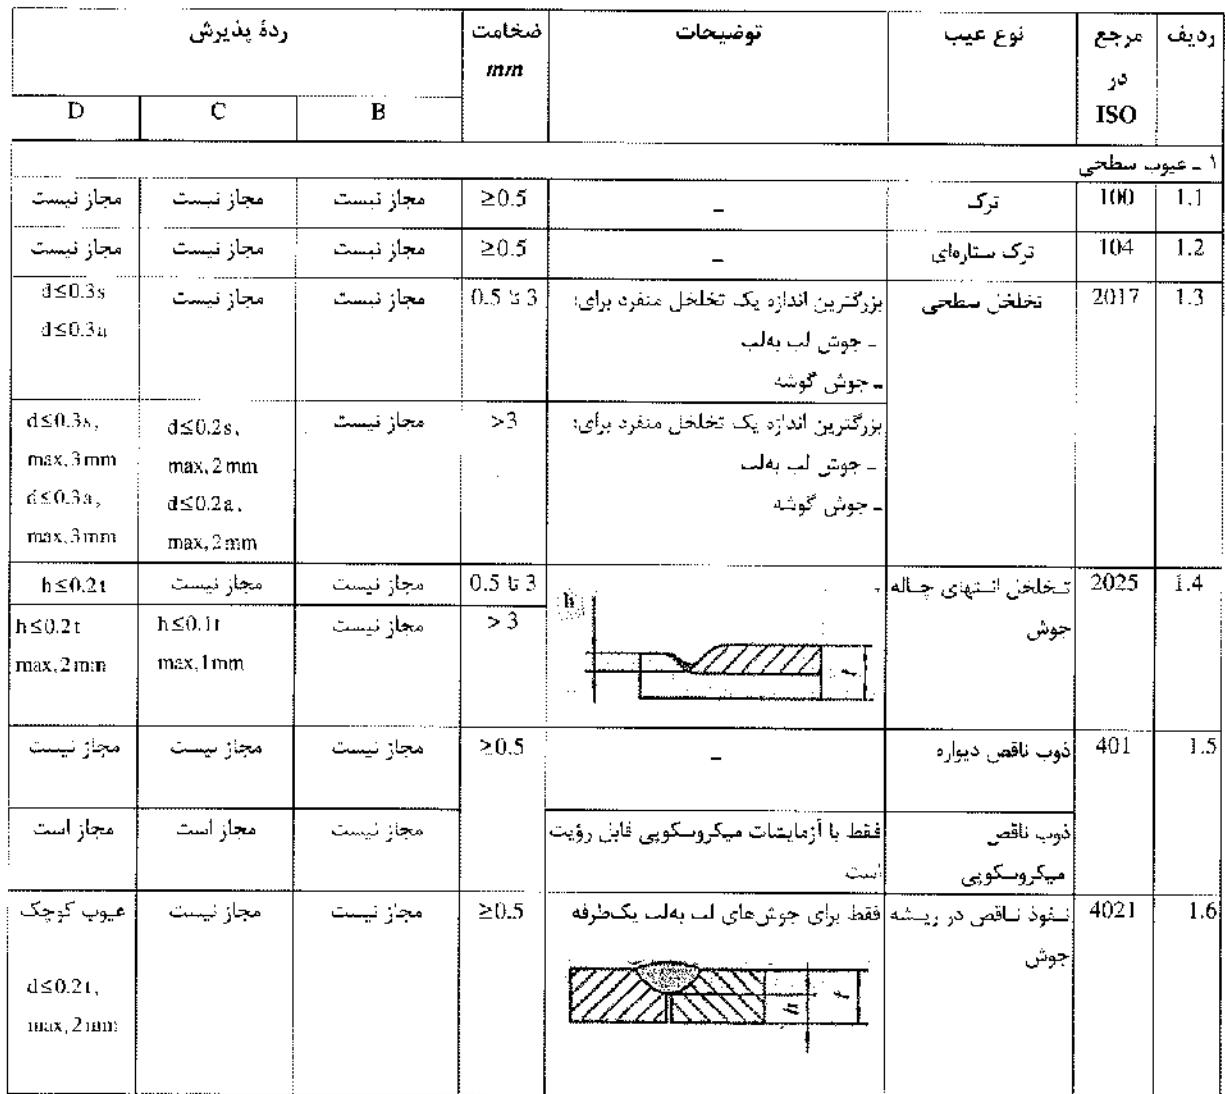 ردیف
مرجع
در
ISO
نوع عیب
توضیحات
ضخامت
mm
ردهٔ پذیرش
B
C
D
۱ ـ عیوب سطحی
1.1
100
ترک
–
≥0.5
مجاز نیست
مجاز نیست
مجاز نیست
1.2
104
ترک ستاره‌ای
–
≥0.5
مجاز نیست
مجاز نیست
مجاز نیست
1.3
2017
تخلخل سطحی
بزرگترین اندازه یک تخلخل منفرد برای:
ـ جوش لب به‌لب
ـ جوش گوشه
0.5 تا 3
مجاز نیست
مجاز نیست
d≤0.3s
d≤0.3a
بزرگترین اندازه یک تخلخل منفرد برای:
ـ جوش لب به‌لب
ـ جوش گوشه
>3
مجاز نیست
d≤0.2s,
max,2mm
d≤0.2a,
max,2mm
d≤0.3s,
max,3mm
d≤0.3a,
max,3mm
1.4
2025
تخلخل انتهای چاله
جوش
-
h
t
0.5 تا 3
مجاز نیست
مجاز نیست
h≤0.2t
> 3
مجاز نیست
h≤0.1t
max,1mm
h≤0.2t
max,2mm
1.5
401
ذوب ناقص دیواره
–
≥0.5
مجاز نیست
مجاز نیست
مجاز نیست
ذوب ناقص
میکروسکوپی
فقط با آزمایشات میکروسکوپی قابل رؤیت
است
مجاز نیست
مجاز است
مجاز است
1.6
4021
نفوذ ناقص در ریشه
جوش
فقط برای جوش‌های لب به‌لب یک‌طرفه
h
t
≥0.5
مجاز نیست
مجاز نیست
عیوب کوچک
d≤0.2t,
max,2mm